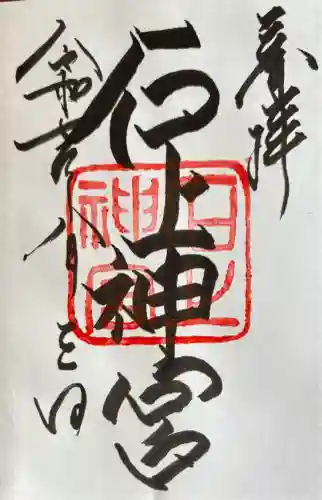 奉拝
石上神宮
令和六年八月三日
石上神宮